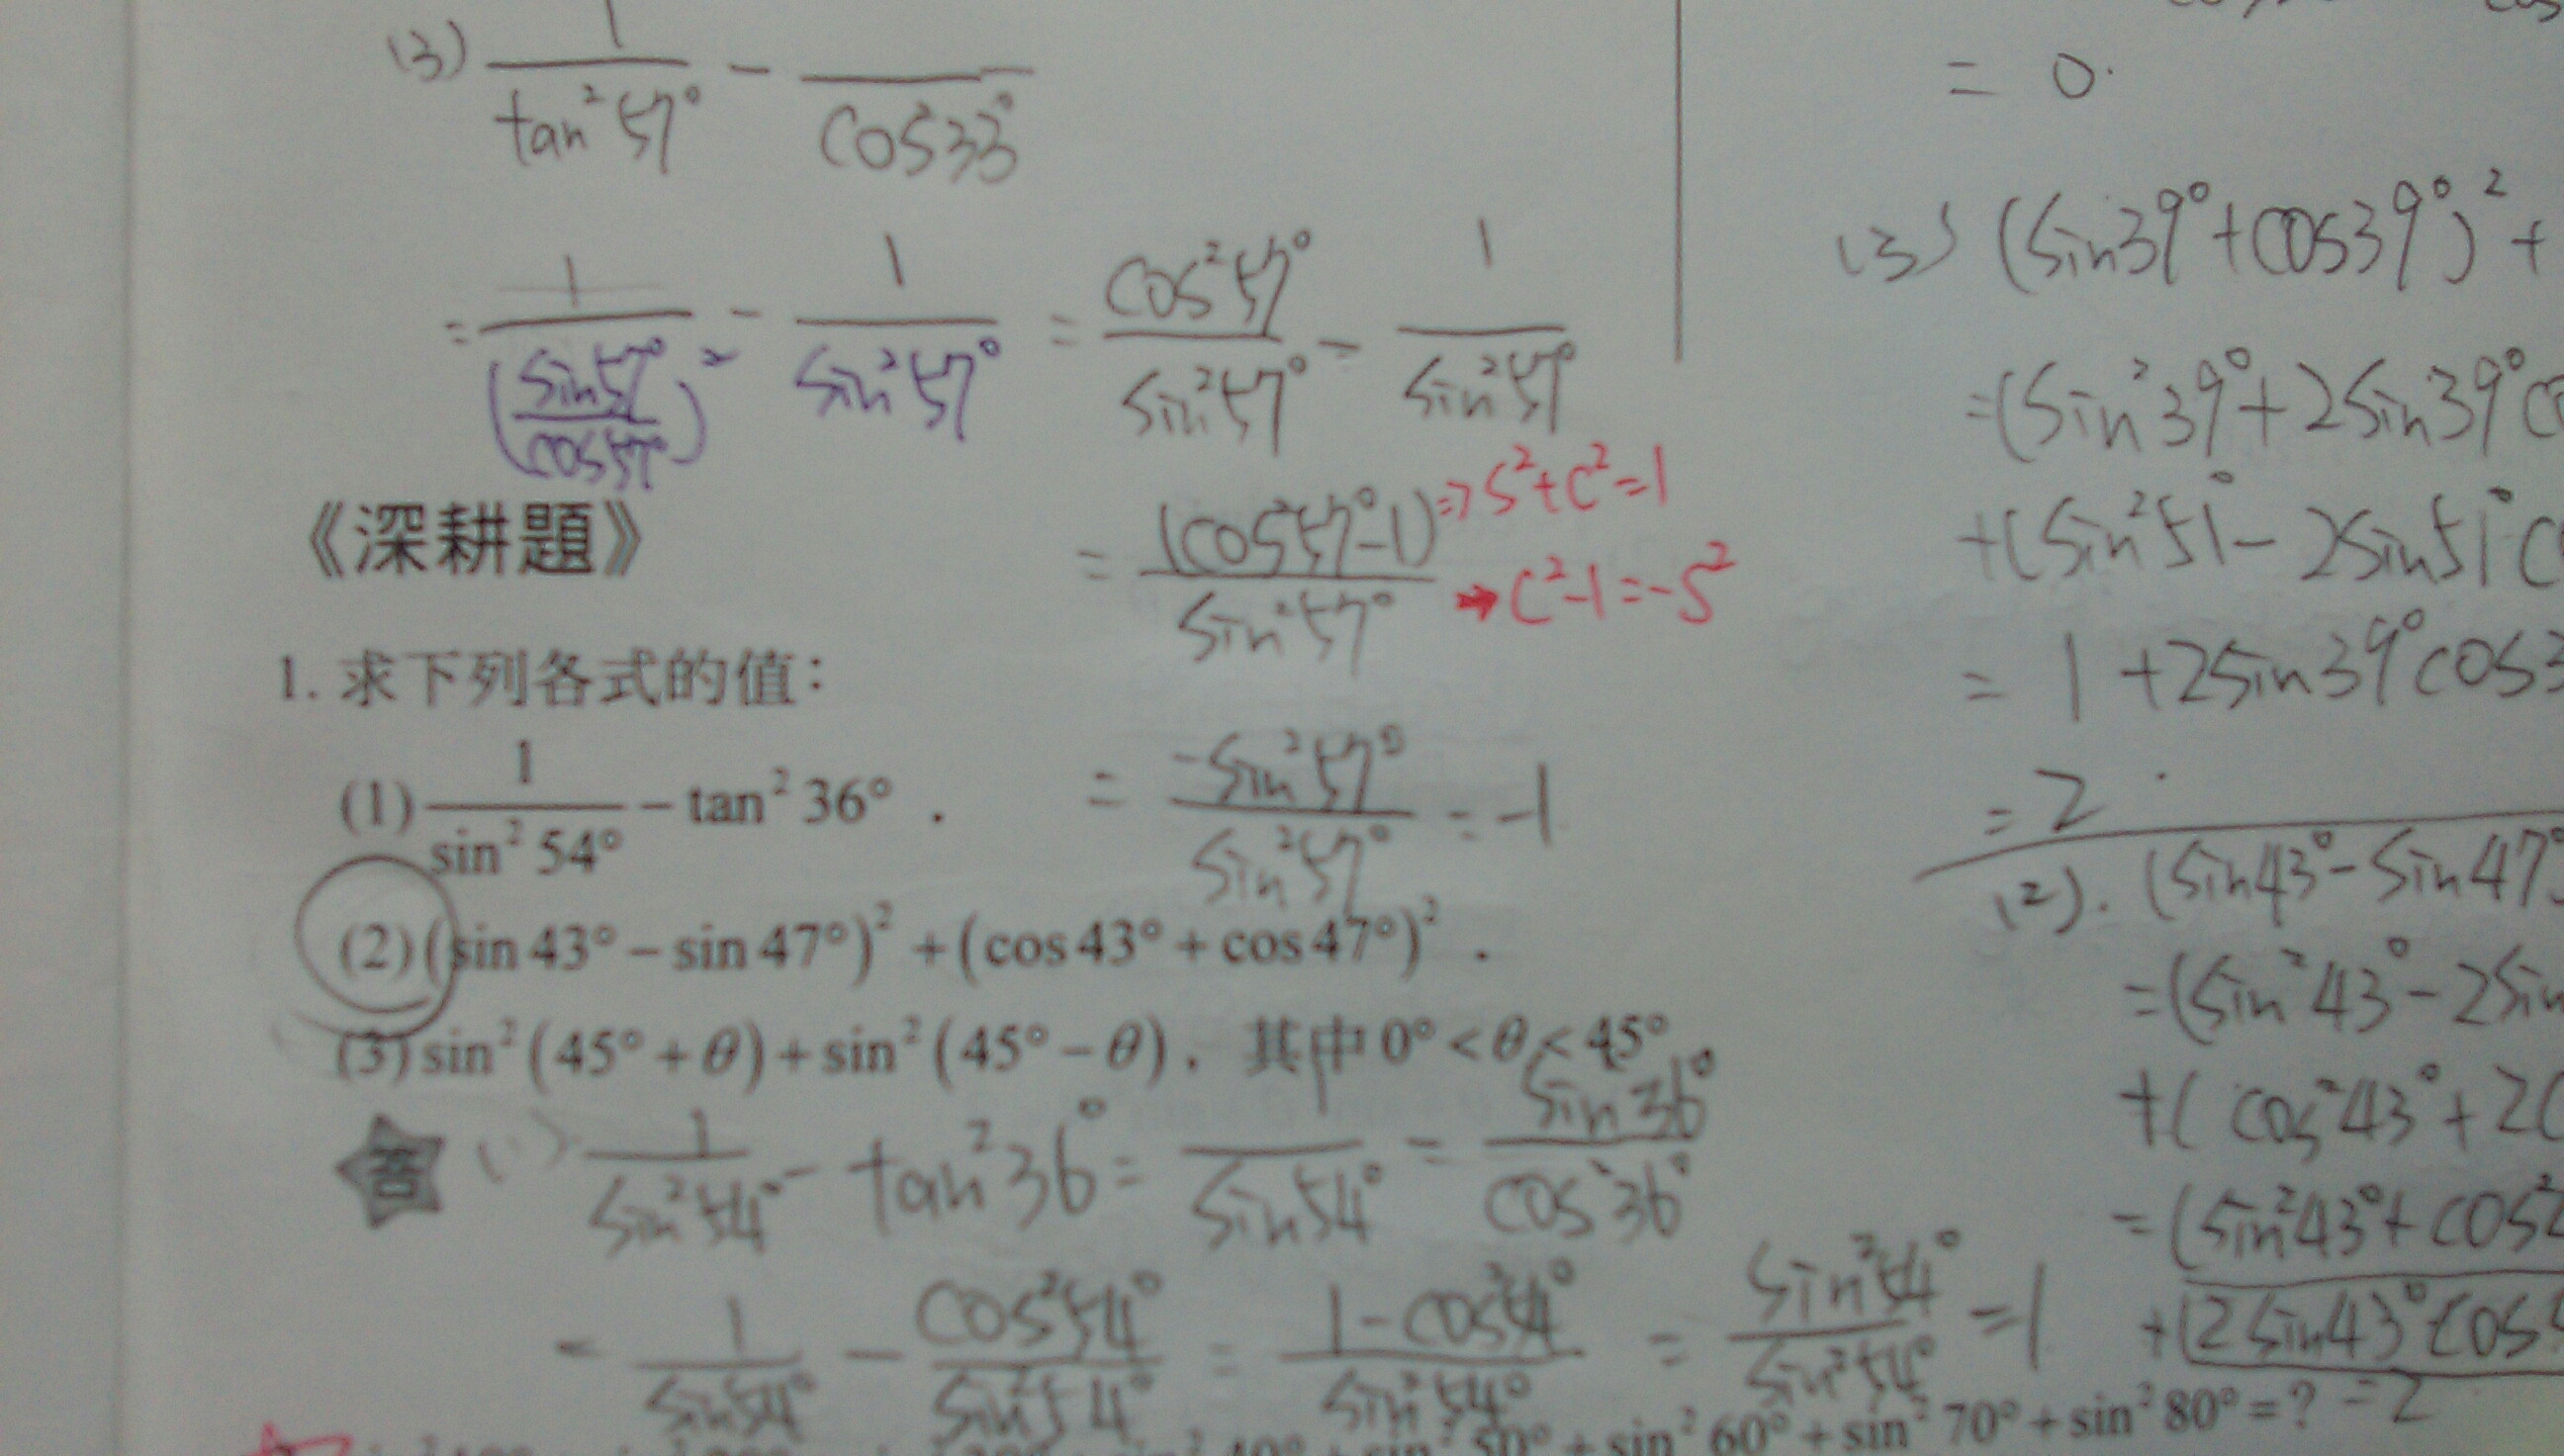 (3) 1/tan²57° - /cos²33°
= 1/(sin57°/cos57°)² - 1/sin²57° = cos²57°/sin²57° - 1/sin²57°
= (cos²57°-1)/sin²57° ⇒ s²+c²=1
→ c²-1=-s²
= -sin²57°/sin²57° = -1
《深耕題》
1. 求下列各式的值：
(1) 1/sin²54° - tan²36°．
(2) (sin43° - sin47°)² + (cos43° + cos47°)²．
(3) sin²(45° + θ) + sin²(45° - θ)．其中0° < θ < 45°
答 (1) 1/sin²54° - tan²36° = 1/sin54° = sin36°/cos²36°
= 1/sin²54° - cos²54°/sin²54° = 1-cos²54°/sin²54° = sin²54°/sin²54° = 1
40° + sin²50° + sin²60° + sin²70° + sin²80° = ?
= 0.
(3) (sin39°+cos39°)²+
=(sin²39°+2sin39°
+(sin²51°-2sin51°
= 1+2sin39°cos3
= 2
(2). (sin43°-sin47°
=(sin²43°-2sin
+(cos²43°+2
=(sin²43°+cos²
+(2sin43°cos
=2